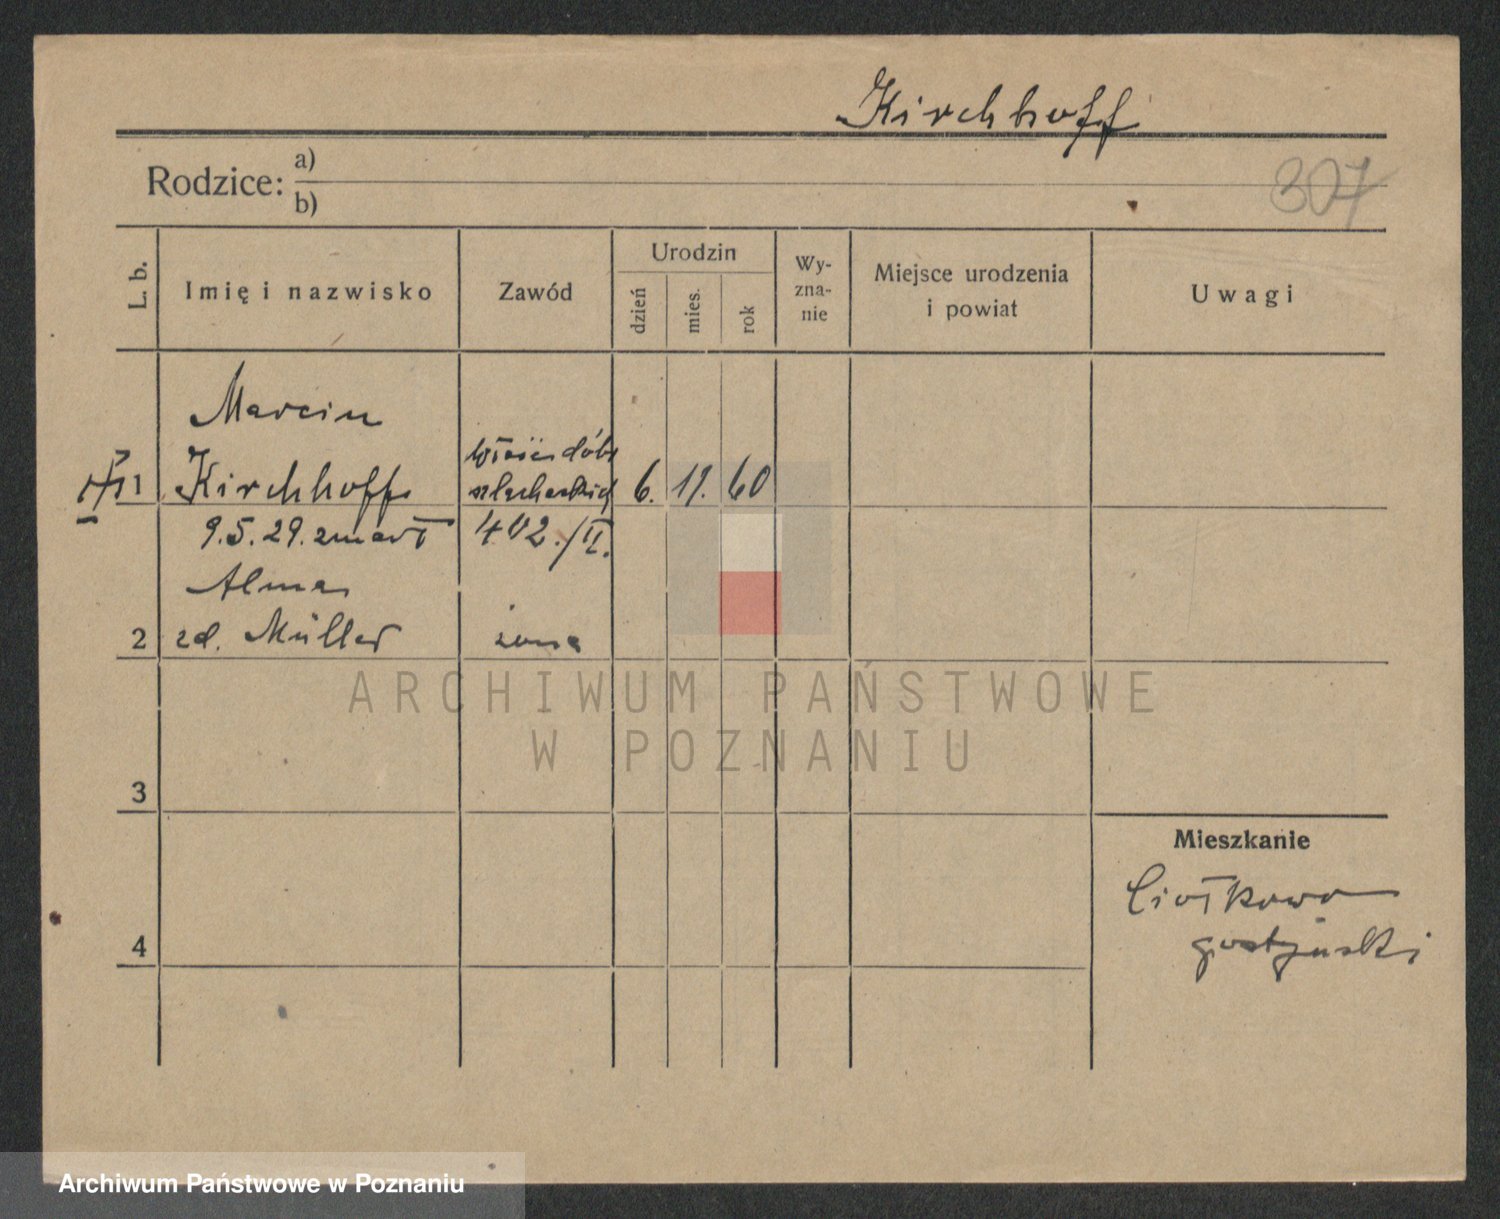 Kirchhoff
307
Rodzice: a)
b)
L. b.
Imię i nazwisko
Zawód
Urodzin
dzień
mies.
rok
Wy-
zna-
nie
Miejsce urodzenia
i powiat
Uwagi
Marcin
1 Kirchhoff
dóbr
szlacheckich
6. 11. 60
9.5.29. zmarł
402./II.
Alma
2 zd. Müller
żona
3
4
Mieszkanie
Ciołkowo
gostyński
ARCHIWUM PAŃSTWOWE
W POZNANIU
Archiwum Państwowe w Poznaniu